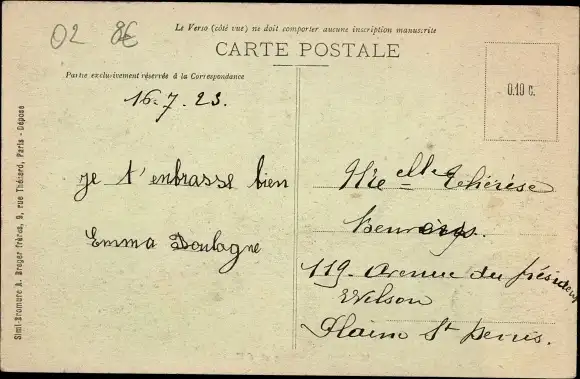 02 8€
Le Verso (côté vue) ne doit comporter aucune inscription manuscrite
CARTE POSTALE
Partie exclusivement réservée à la Correspondance
0.10 c.
16.7.23.
je t'enbrasse bien
Emma Doulagne
Mlle Thérèse
119. Avenue du président
Wilson
Plaine St Denis.
Simi-Bromure A. Breger frères, 9, rue Thénard, Paris - Déposé